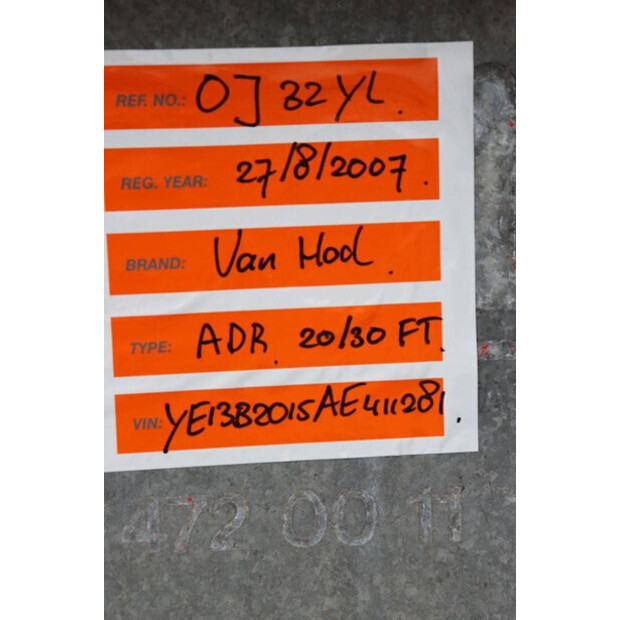 REF. NO.: OJ 32 YL.
REG. YEAR: 27/8/2007.
BRAND: Van Hool.
TYPE: ADR. 20/30 FT.
VIN: YE13B2015AE411281.
472 00 11